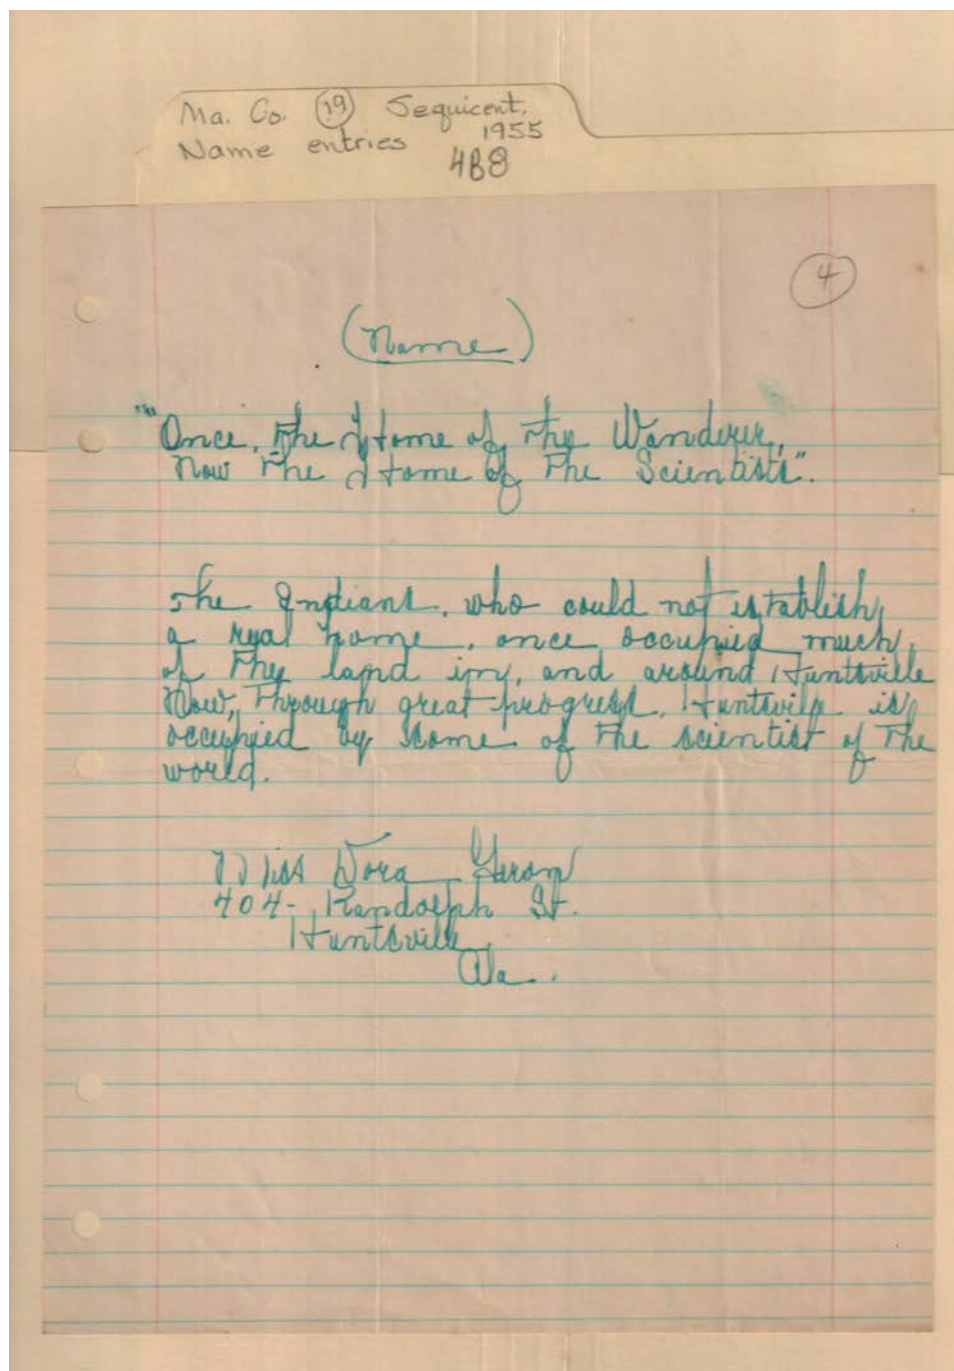 Ma. Co. 19 Sequicent.
1955
Name entries
4B8
4
(Name)
"Once, The Home of The Wanderer,
Now The Home of The Scientists".
The Indians, who could not establish
a real home, once occupied much
of The land in, and around Huntsville
Now, Through great progress, Huntsville is
occupied by some of The scientist of The
world.
Miss Dora
404- Randolph St.
Huntsville,
Ala.